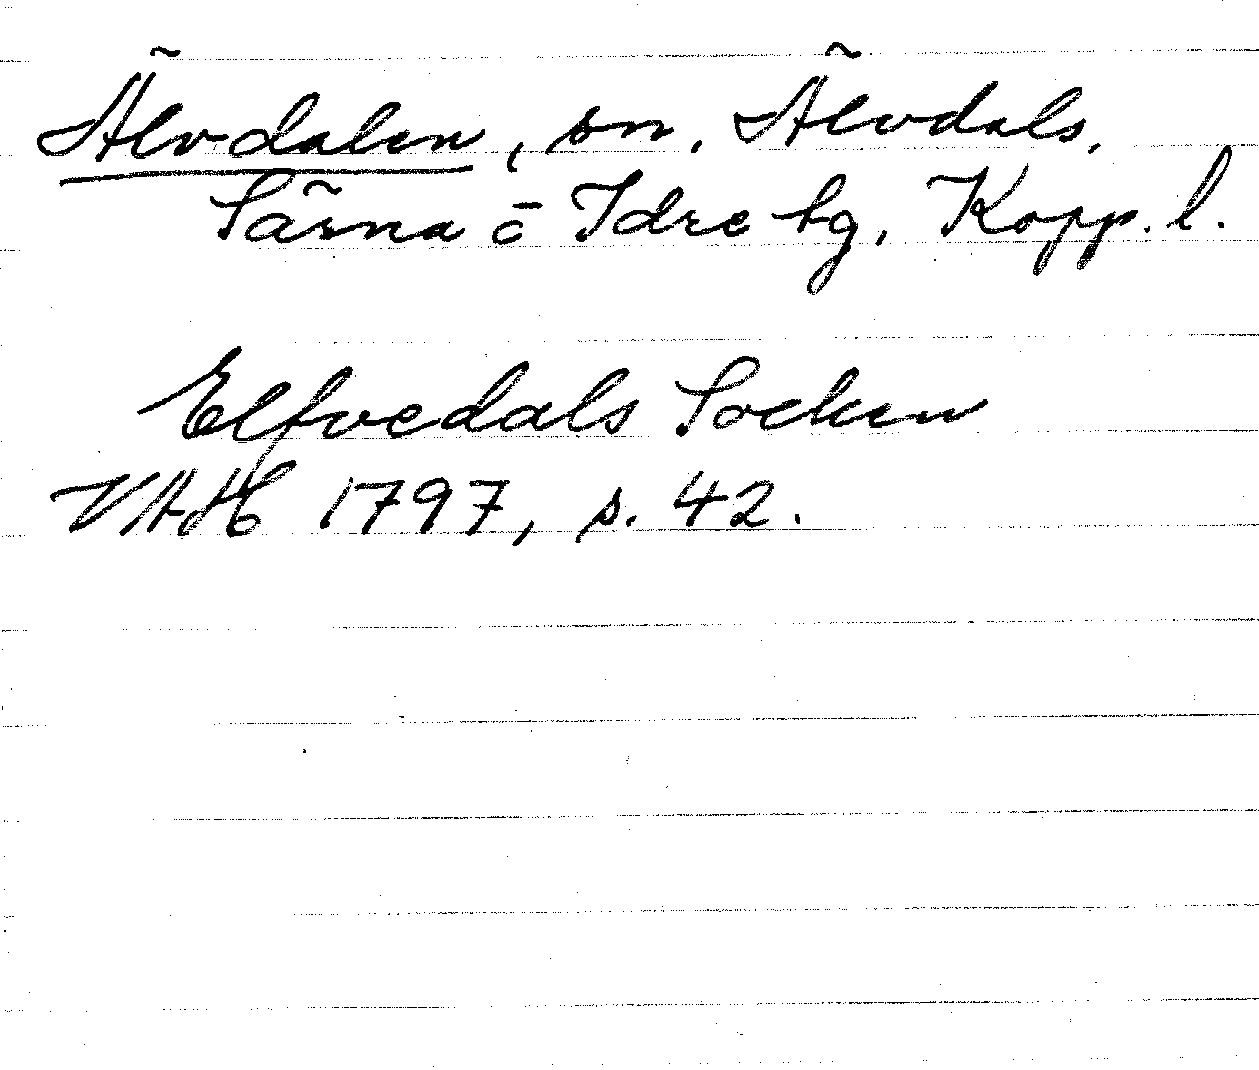 Älvdalen, sn, Älvdals,
Särna o Idre tg, Kopp. l.
Elfvedals Socken
VAH 1797, s. 42.